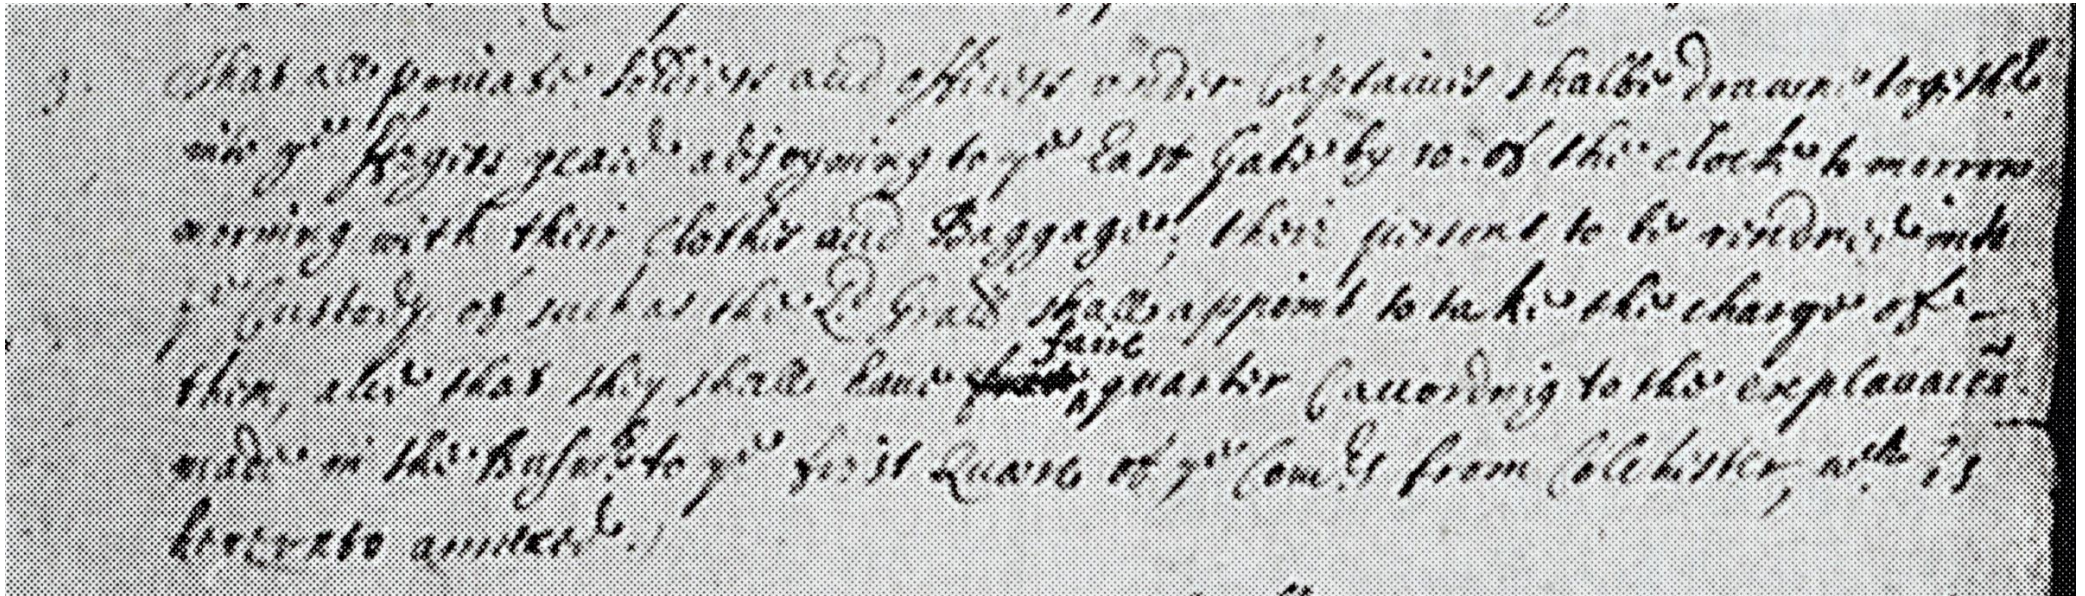 3. That all priuate Soldiers and officers vnder Captaines shalbe drawne together
into ye Fryers yeard adjoyning to ye East Gate by 10: of the clocke to morrow
morning with their Clothes and Baggage, their persons to be rendred into
ye Custody of such as the Ld Gralł shall appoint to take the charge of
them, and that they shall haue faire quarter according to the explanacon
made in the Answere to ye first Quære of ye Comrs from Colchester, wch is
hereunto annexed.